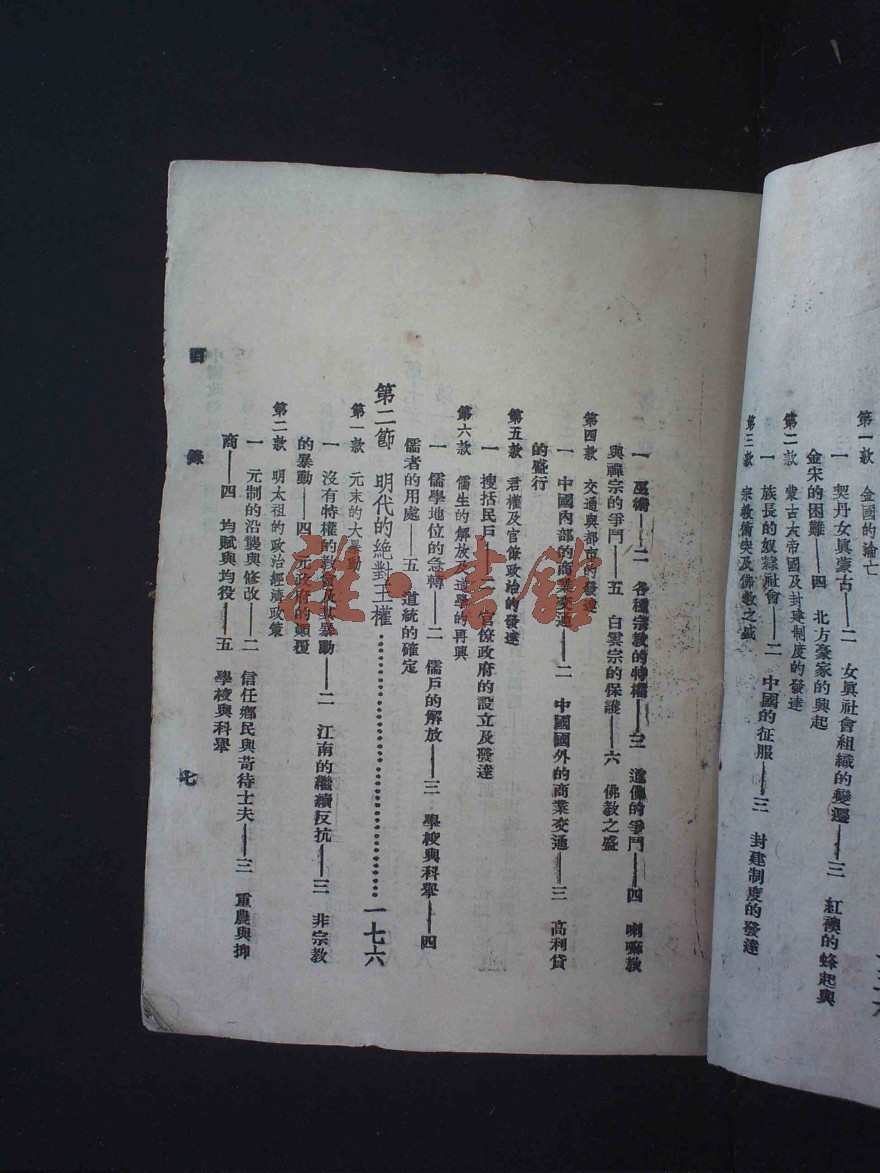 第一款 金國的淪亡
一 契丹女眞蒙古——二 女眞社會組織的變遷——三 紅襖的蜂起與
金宋的困難——四 北方豪家的興起
第二款 蒙古大帝國及封建制度的發達
一 族長的奴隸社會——二 中國的征服——三 封建制度的發達
第三款 宗教衝突及佛教之盛
一 巫術——二 各種宗教的特權——三 道佛的爭鬥——四 喇嘛教
與禪宗的爭鬥——五 白雲宗的保護——六 佛教之盛
第四款 交通與都市的發達
一 中國內部的商業交通——二 中國國外的商業交通——三 高利貸
的盛行
第五款 君權及官僚政治的發達
一 搜括民戶——二 官僚政府的設立及發達
第六款 儒生的解放與道學的再興
一 儒學地位的急轉——二 儒戶的解放——三 學校與科舉——四
儒者的用處——五 道統的確定
第二節 明代的絕對王權……………一七六
第一款 元末的大暴動
一 沒有特權的教會及其暴動——二 江南的繼續反抗——三 非宗教
的暴動——四 元政府的顛覆
第二款 明太祖的政治經濟政策
一 元制的沿襲與修改——二 信任鄉民與苛待士夫——三 重農與抑
商——四 均賦與均役——五 學校與科舉
目錄
七
雜·書館